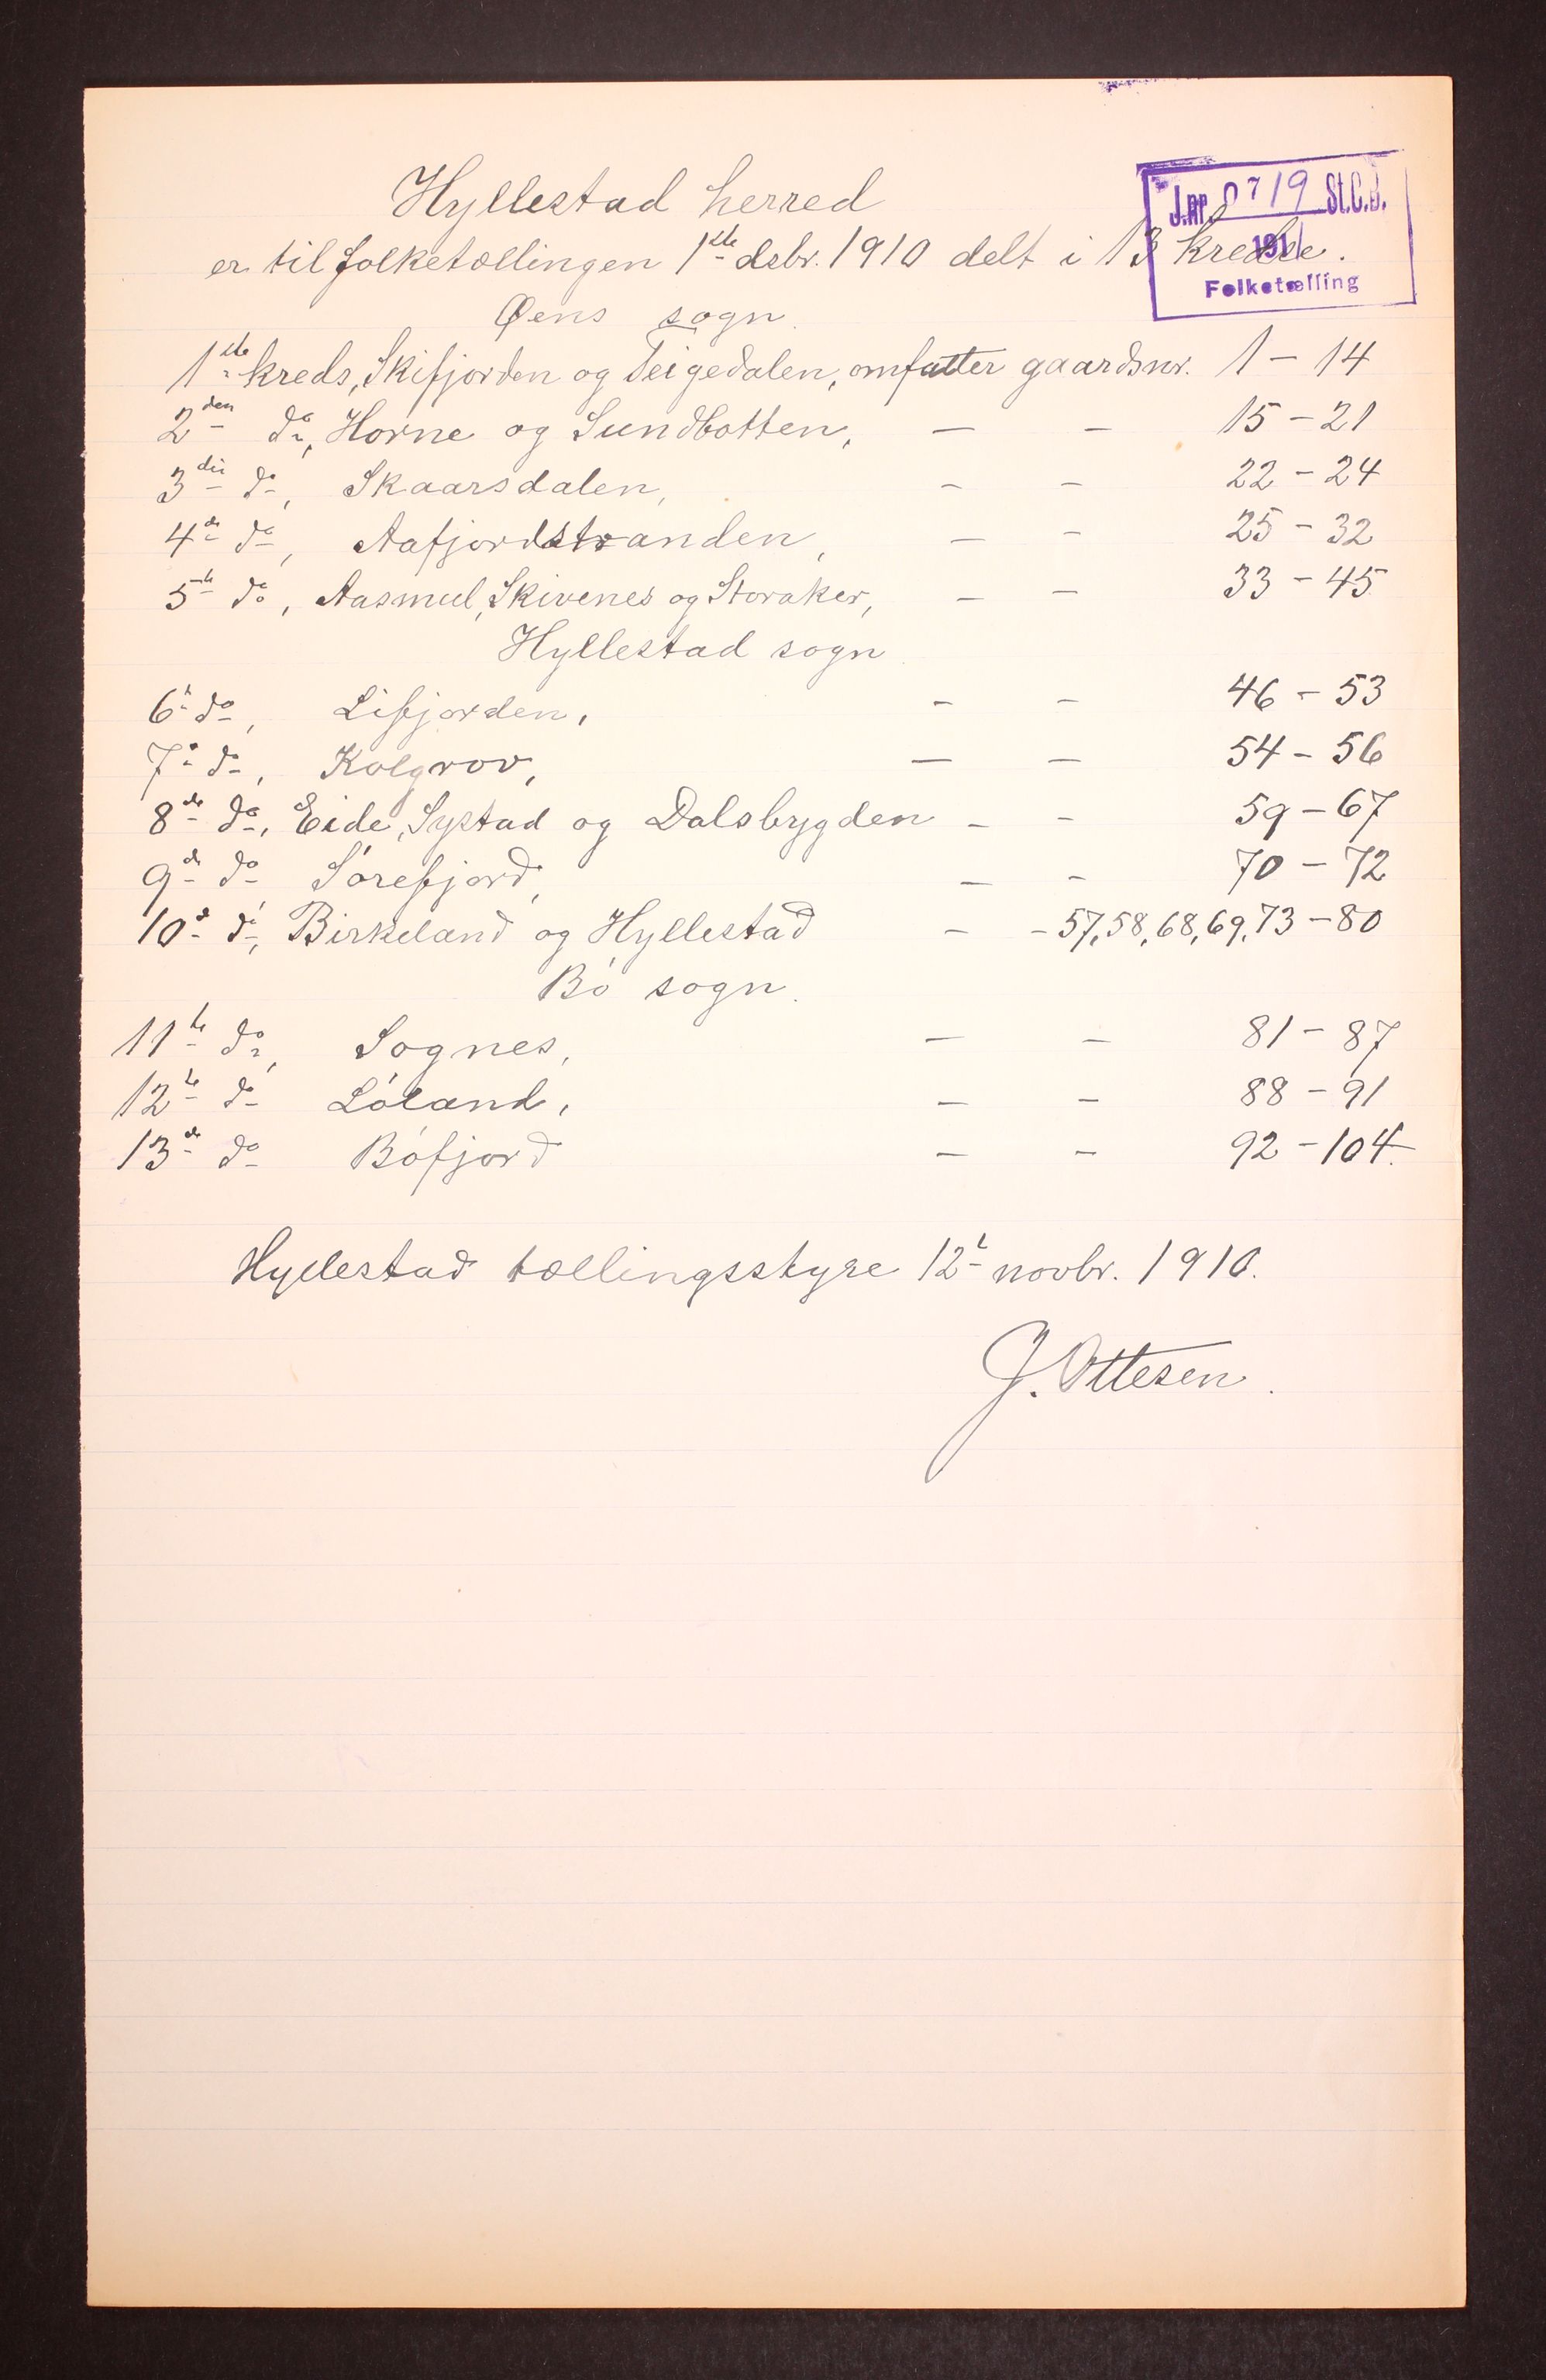 Hyllestad herred
J.nr. 0719 St.C.B.
1911
Folketælling
er til folketællingen 1ste desbr. 1910 delt i 13 kredse.
Øens sogn.
1ste kreds, Skifjorden og Teigedalen, omfatter gaardsnr. 1 – 14
2den do, Horne og Sundbotten, – – 15 – 21
3die do, Skaarsdalen, – – 22 – 24
4de do, Aafjordstranden, – – 25 – 32
5te do, Aasmul, Skivenes og Storaker, – – 33 – 45
Hyllestad sogn
6te do, Lifjorden, – – 46 – 53
7de do, Kolgrov, – – 54 – 56
8de do, Eide, Systad og Dalsbygden – – 59 – 67
9de do Sørefjord, – – 70 – 72
10de do, Birkeland og Hyllestad – – 57, 58, 68, 69, 73 – 80
Bø sogn.
11te do, Sognes, – – 81 – 87
12te do Løland, – – 88 – 91
13de do Bøfjord – – 92 – 104.
Hyllestad tællingsstyre 12te novbr. 1910.
J. Ottesen.